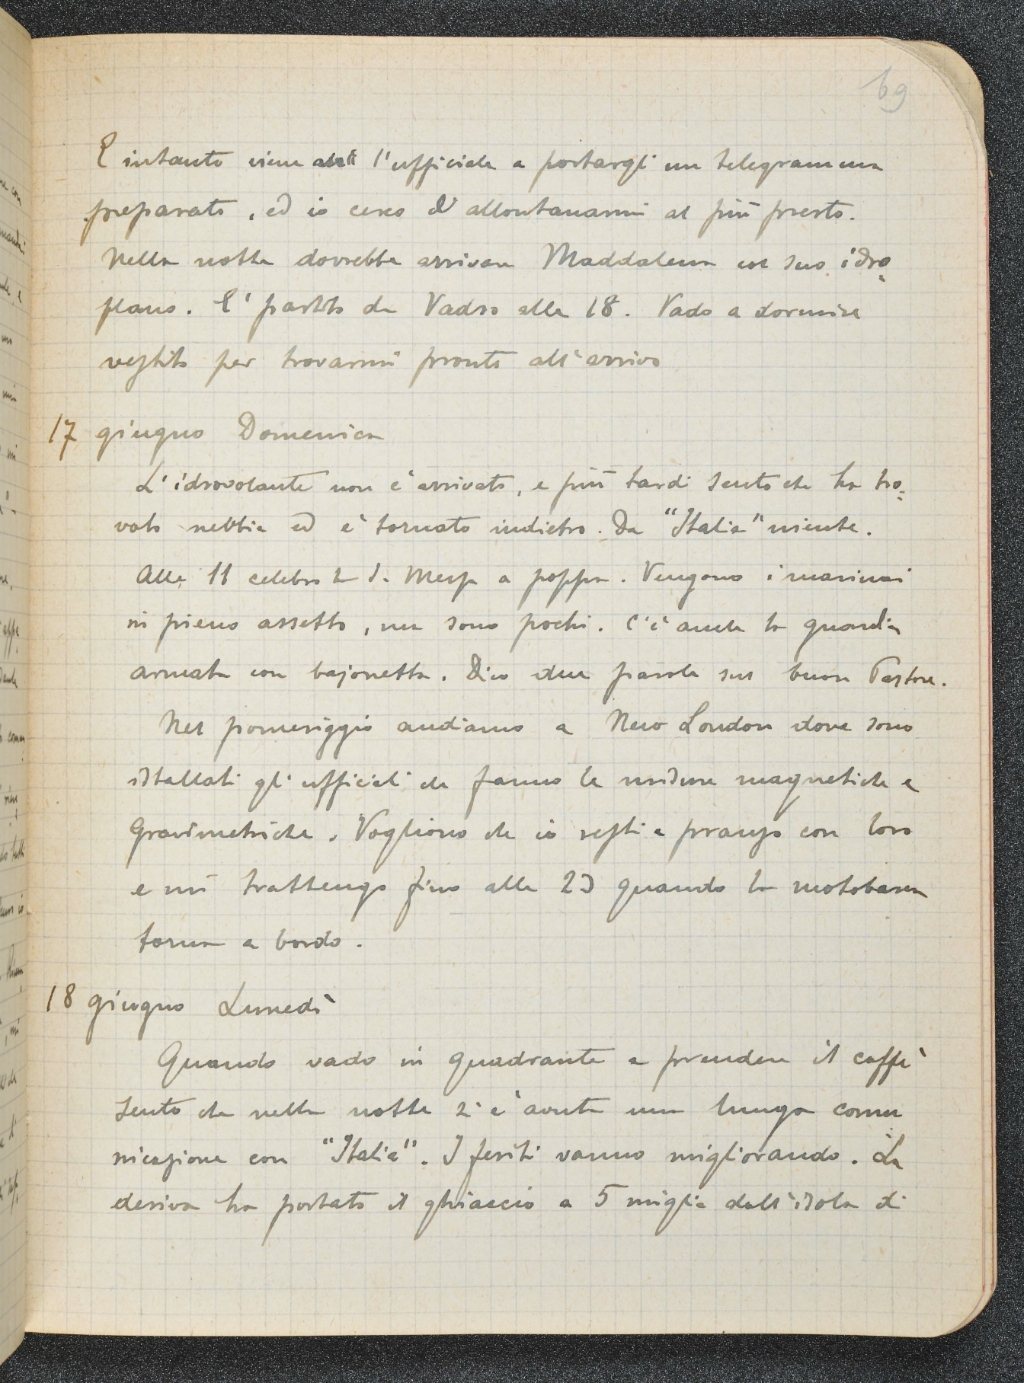 69
E intanto viene l'ufficiale a portargli un telegramma
preparato, ed io cerco d'allontanarmi al più presto.
Nella notte dovrebbe arrivare Maddalena col suo idro=
plano. E' partito da Vadsö alle 18. Vado a dormire
vestito per trovarmi pronto all'arrivo
17 giugno Domenica
L'idrovolante non è arrivato, e più tardi sento che ha tro=
vato nebbia ed è tornato indietro. Da "Italia" niente.
Alle 11 celebro la S. Messa a poppa. Vengono i marinai
in pieno assetto, ma sono pochi. C'è anche la guardia
armata con bajonetta. Dico due parole sul buon Pastore.
Nel pomeriggio andiamo a New London dove sono
istallati gli ufficiali che fanno le misure magnetiche e
gravimetriche. Vogliono che io resti a pranzo con loro
e mi trattengo fino alle 23 quando la motobarca
torna a bordo.
18 giugno Lunedì
Quando vado in quadrato a prendere il caffè
sento che nella notte si è avuta una lunga comu
nicazione con "Italia". I feriti vanno migliorando. La
deriva ha portato il ghiaccio a 5 miglia dall'isola di